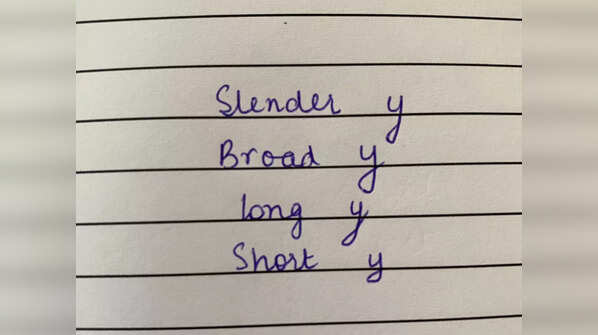 Slender y
Broad y
long y
Short y